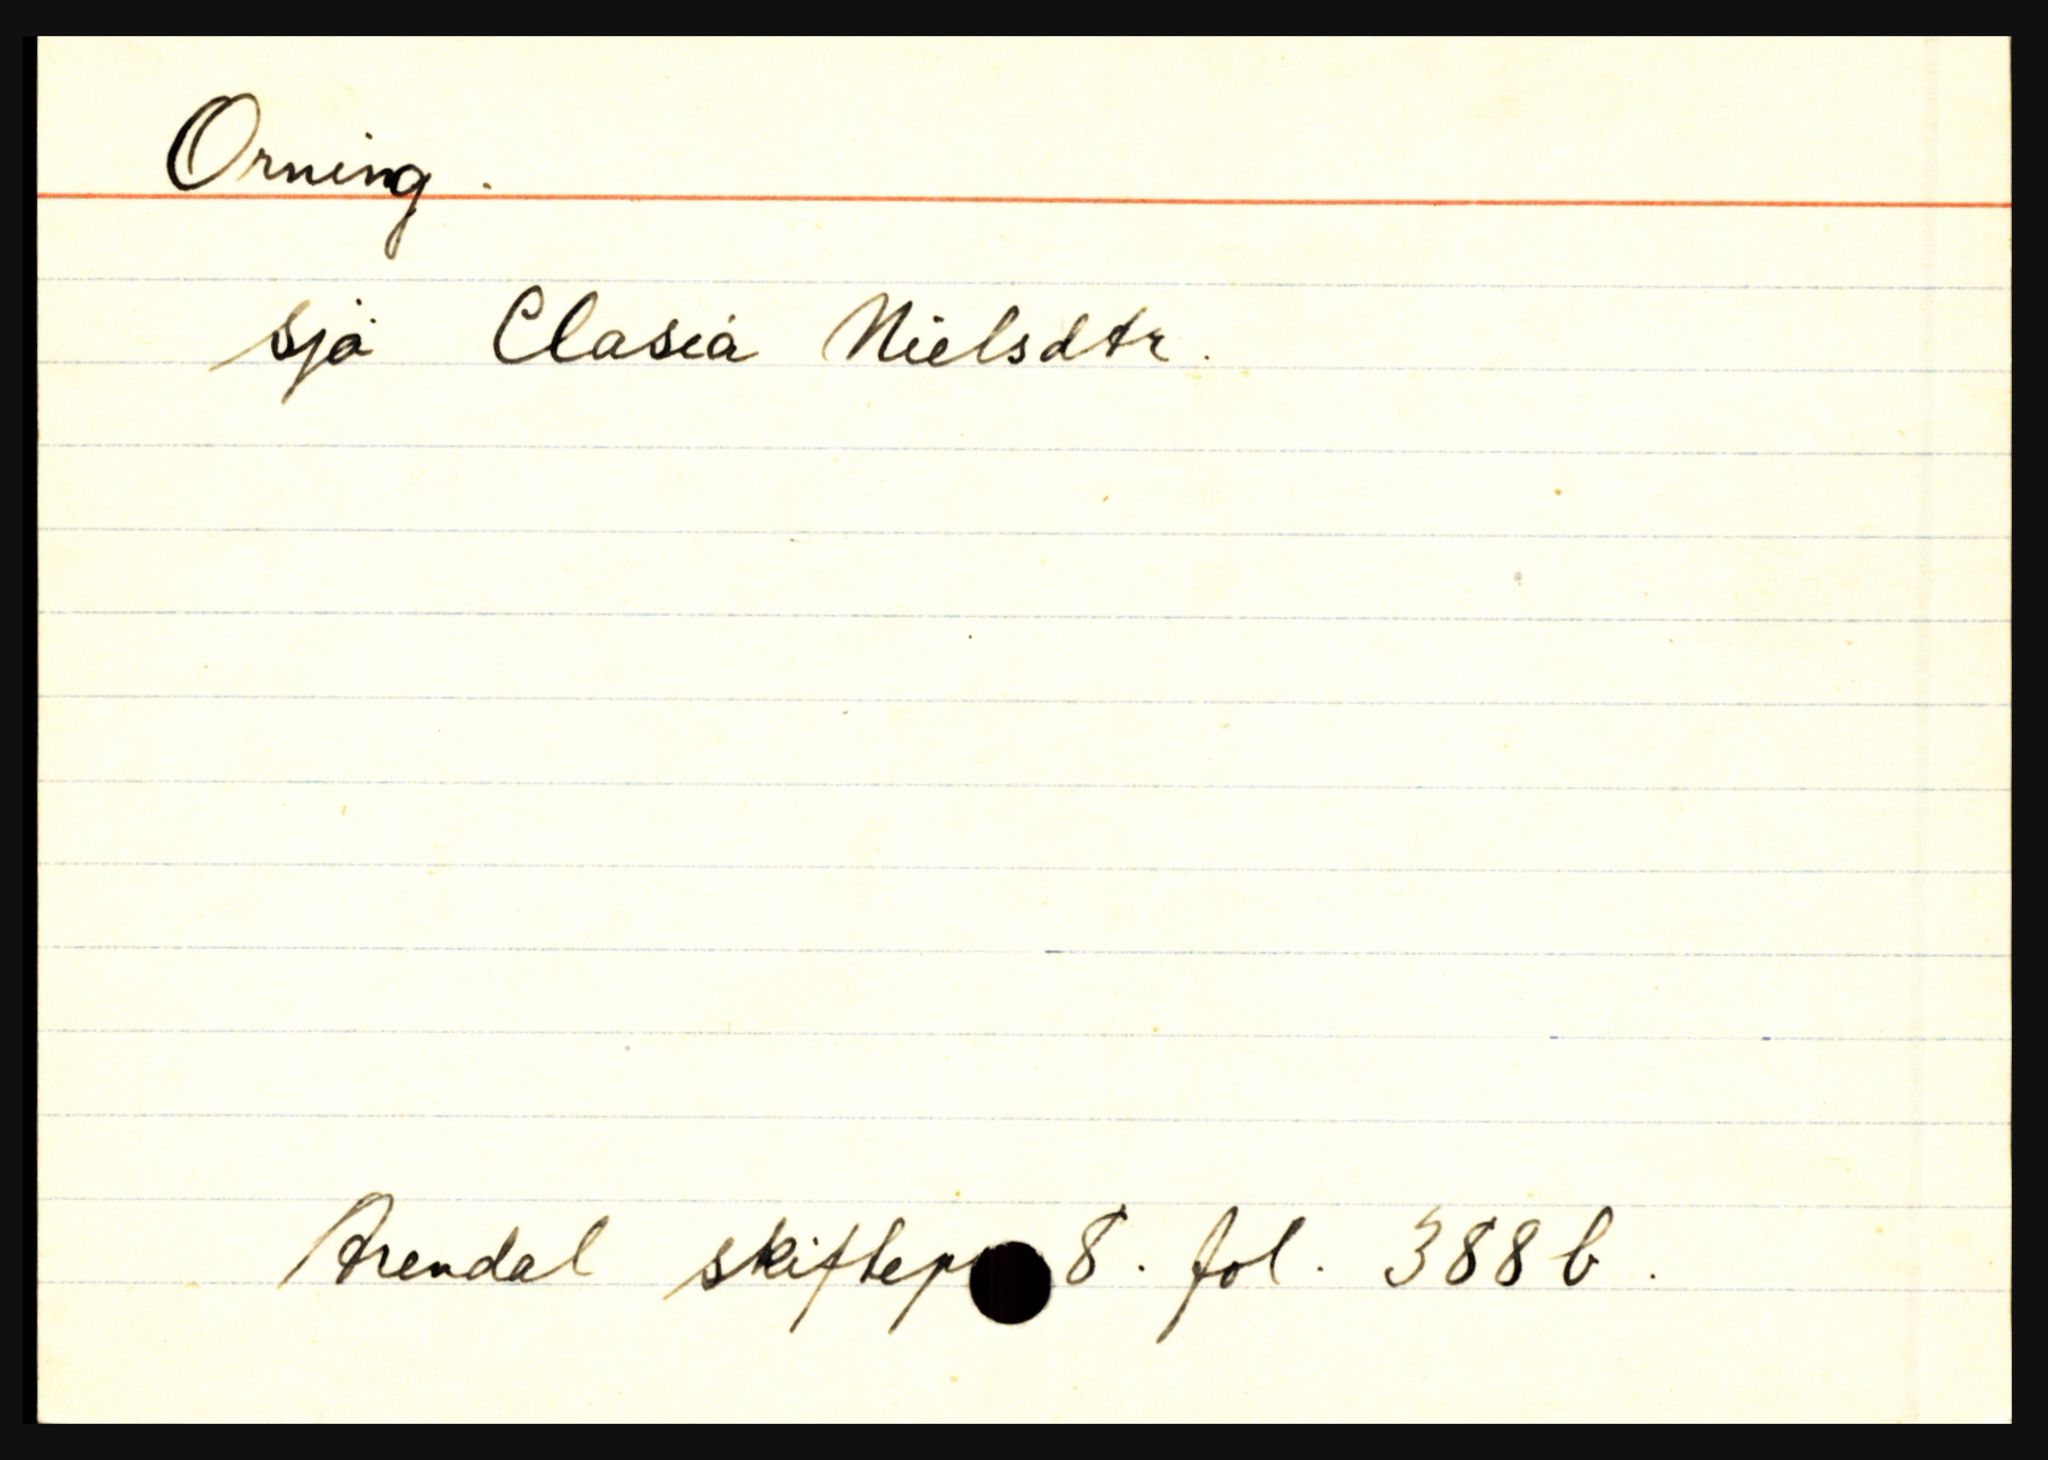 Orning.
sjå Clasia Nielsdtr.
Arendal skiftep 8. fol. 388 b.